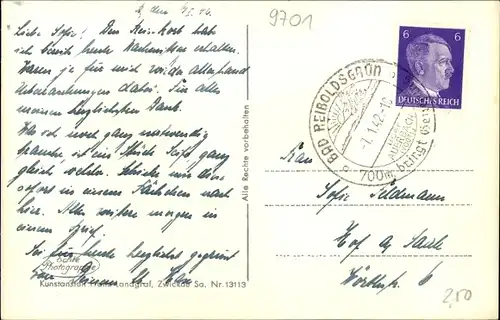 9701
d. den 7.I.42.
Liebe Sofie! Den Reisekorb hab
ich bereits heute Nachmittag erhalten.
Waren ja für mich wieder allerhand
Überraschungen dabei. Für alles
meinen herzlichsten Dank.
Was ich noch ganz notwendig
brauche, ist ein Stück Seife ganz
gleich welche. Schicke mir diese
sofort in einem Päckchen nach
hier. Alles weitere morgen in
einem Brief.
Sei für heute herzlichst gegrüsst
von
Echte
Photographie
Kunstanstalt Landgraf, Zwickau Sa. Nr. 13113
Alle Rechte vorbehalten
BAD REIBOLDSGRÜN
-7.1.42.-10
700m
bringt Gen
6 6
DEUTSCHES REICH
Frau
Sofie Feldmann
Hof a/ Saale
Wörthstr. 6
2,50